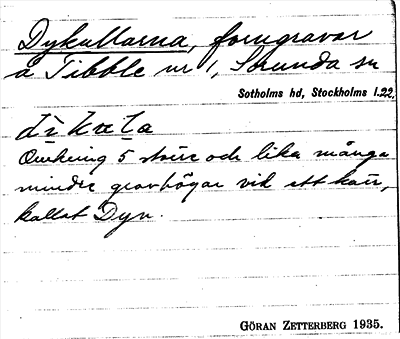 Dykullarna, forngravar
å Tibble nr 1, Sorunda sn
Sotholms hd, Stockholms l.22.
Omkring 5 större och lika många
mindre gravhögar vid ett kärr,
kallat Dyn.
GÖRAN ZETTERBERG 1935.